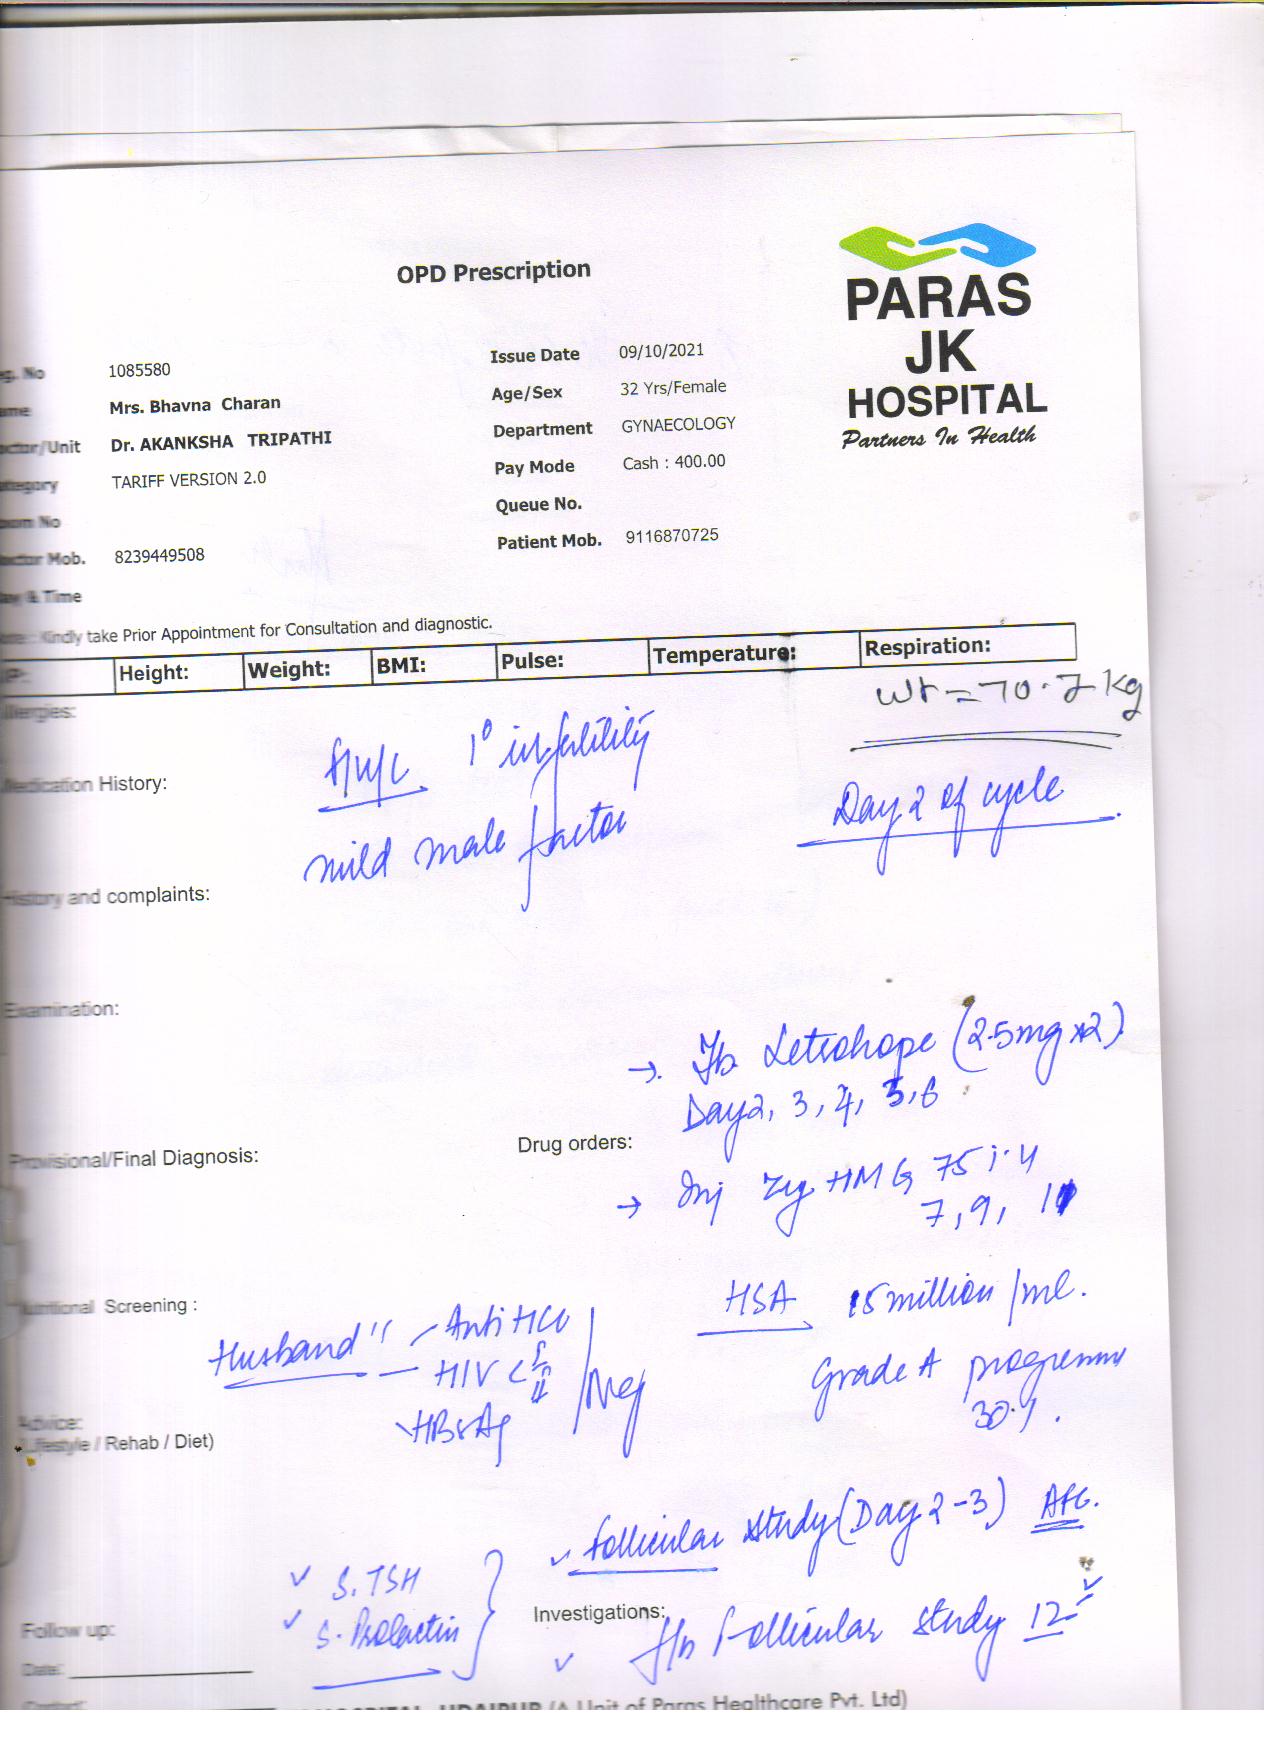 OPD Prescription
PARAS
JK
HOSPITAL
Partners In Health
g. No 1085580
Issue Date 09/10/2021
ame Mrs. Bhavna Charan
Age/Sex 32 Yrs/Female
octor/Unit Dr. AKANKSHA TRIPATHI
Department GYNAECOLOGY
ategory TARIFF VERSION 2.0
Pay Mode Cash : 400.00
oom No
Queue No.
octor Mob. 8239449508
Patient Mob. 9116870725
ay & Time
Kindly take Prior Appointment for Consultation and diagnostic.
Height: Weight: BMI: Pulse: Temperature: Respiration:
Wt = 70.7 kg
llergies:
1° infertility
Medication History:
mild male factor
Day 2 of cycle
History and complaints:
Examination:
→ Tb Letrohope (2.5mg x2)
Day 2, 3, 4, 5, 6
Drug orders:
Provisional/Final Diagnosis:
→ Inj Zy HMG 75 i.u
7, 9, 11
Nutritional Screening :
HSA 15 million /ml.
Husband's - Anti HCV
HIV I II
HBsAg
Neg
Grade A progressive
30%.
Advice:
(Lifestyle / Rehab / Diet)
Follicular study (Day 2-3) AFC.
S. TSH
S. Prolactin
Investigations:
Follicular study 12
Follow up:
Date:
Contact:
HOSPITAL, UDAIPUR (A Unit of Paras Healthcare Pvt. Ltd)